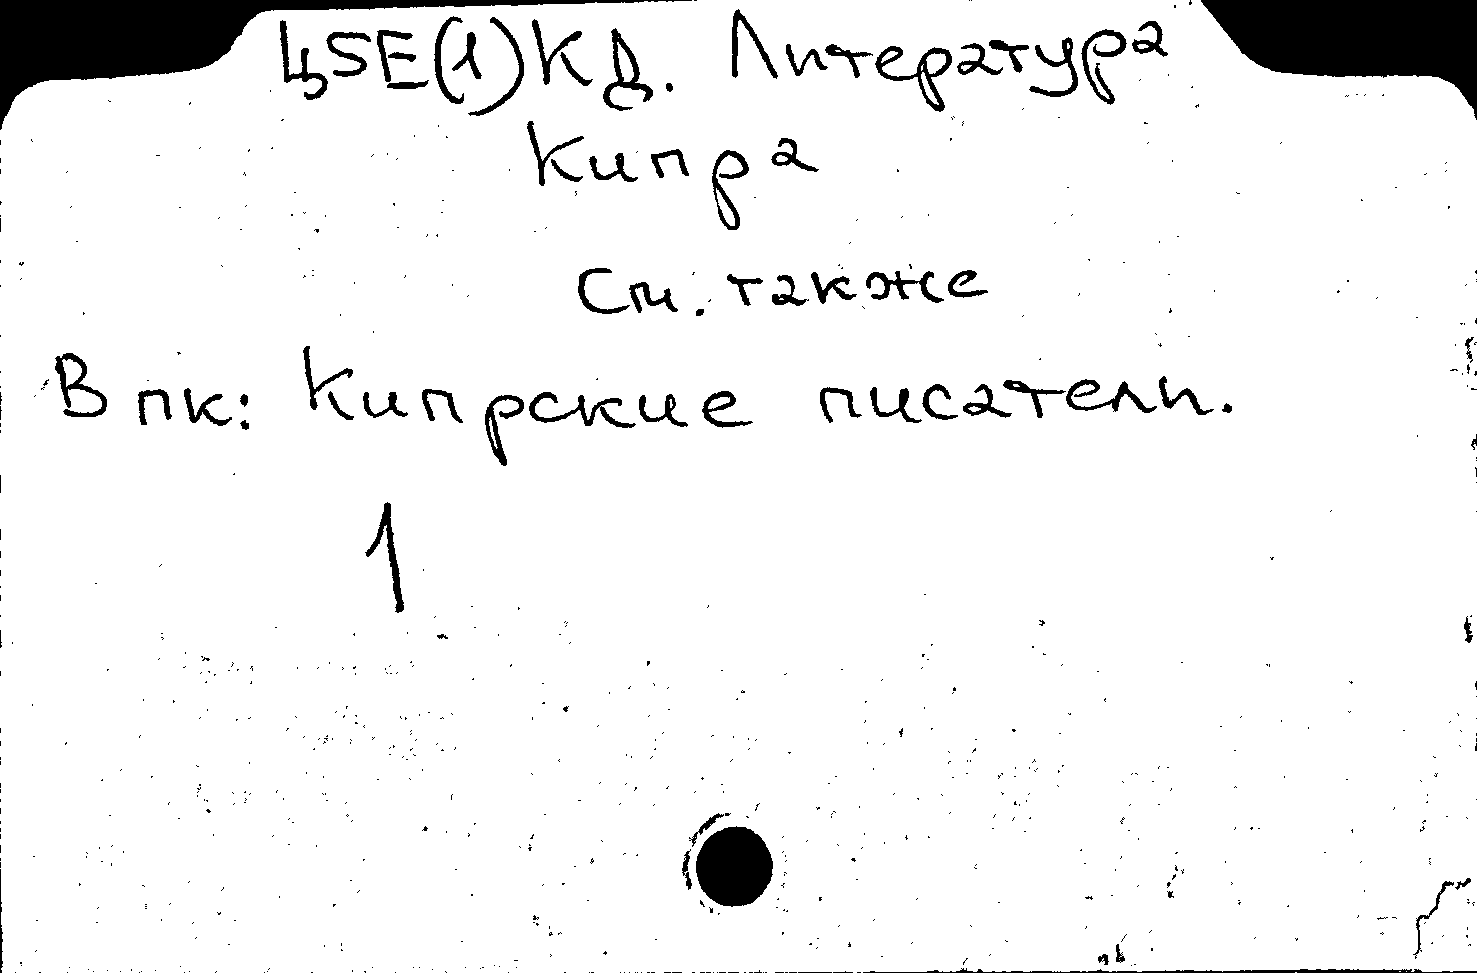 Ц5Е(1)КД. Литература
Кипра
См. также
В пк: Кипрские писатели.
1